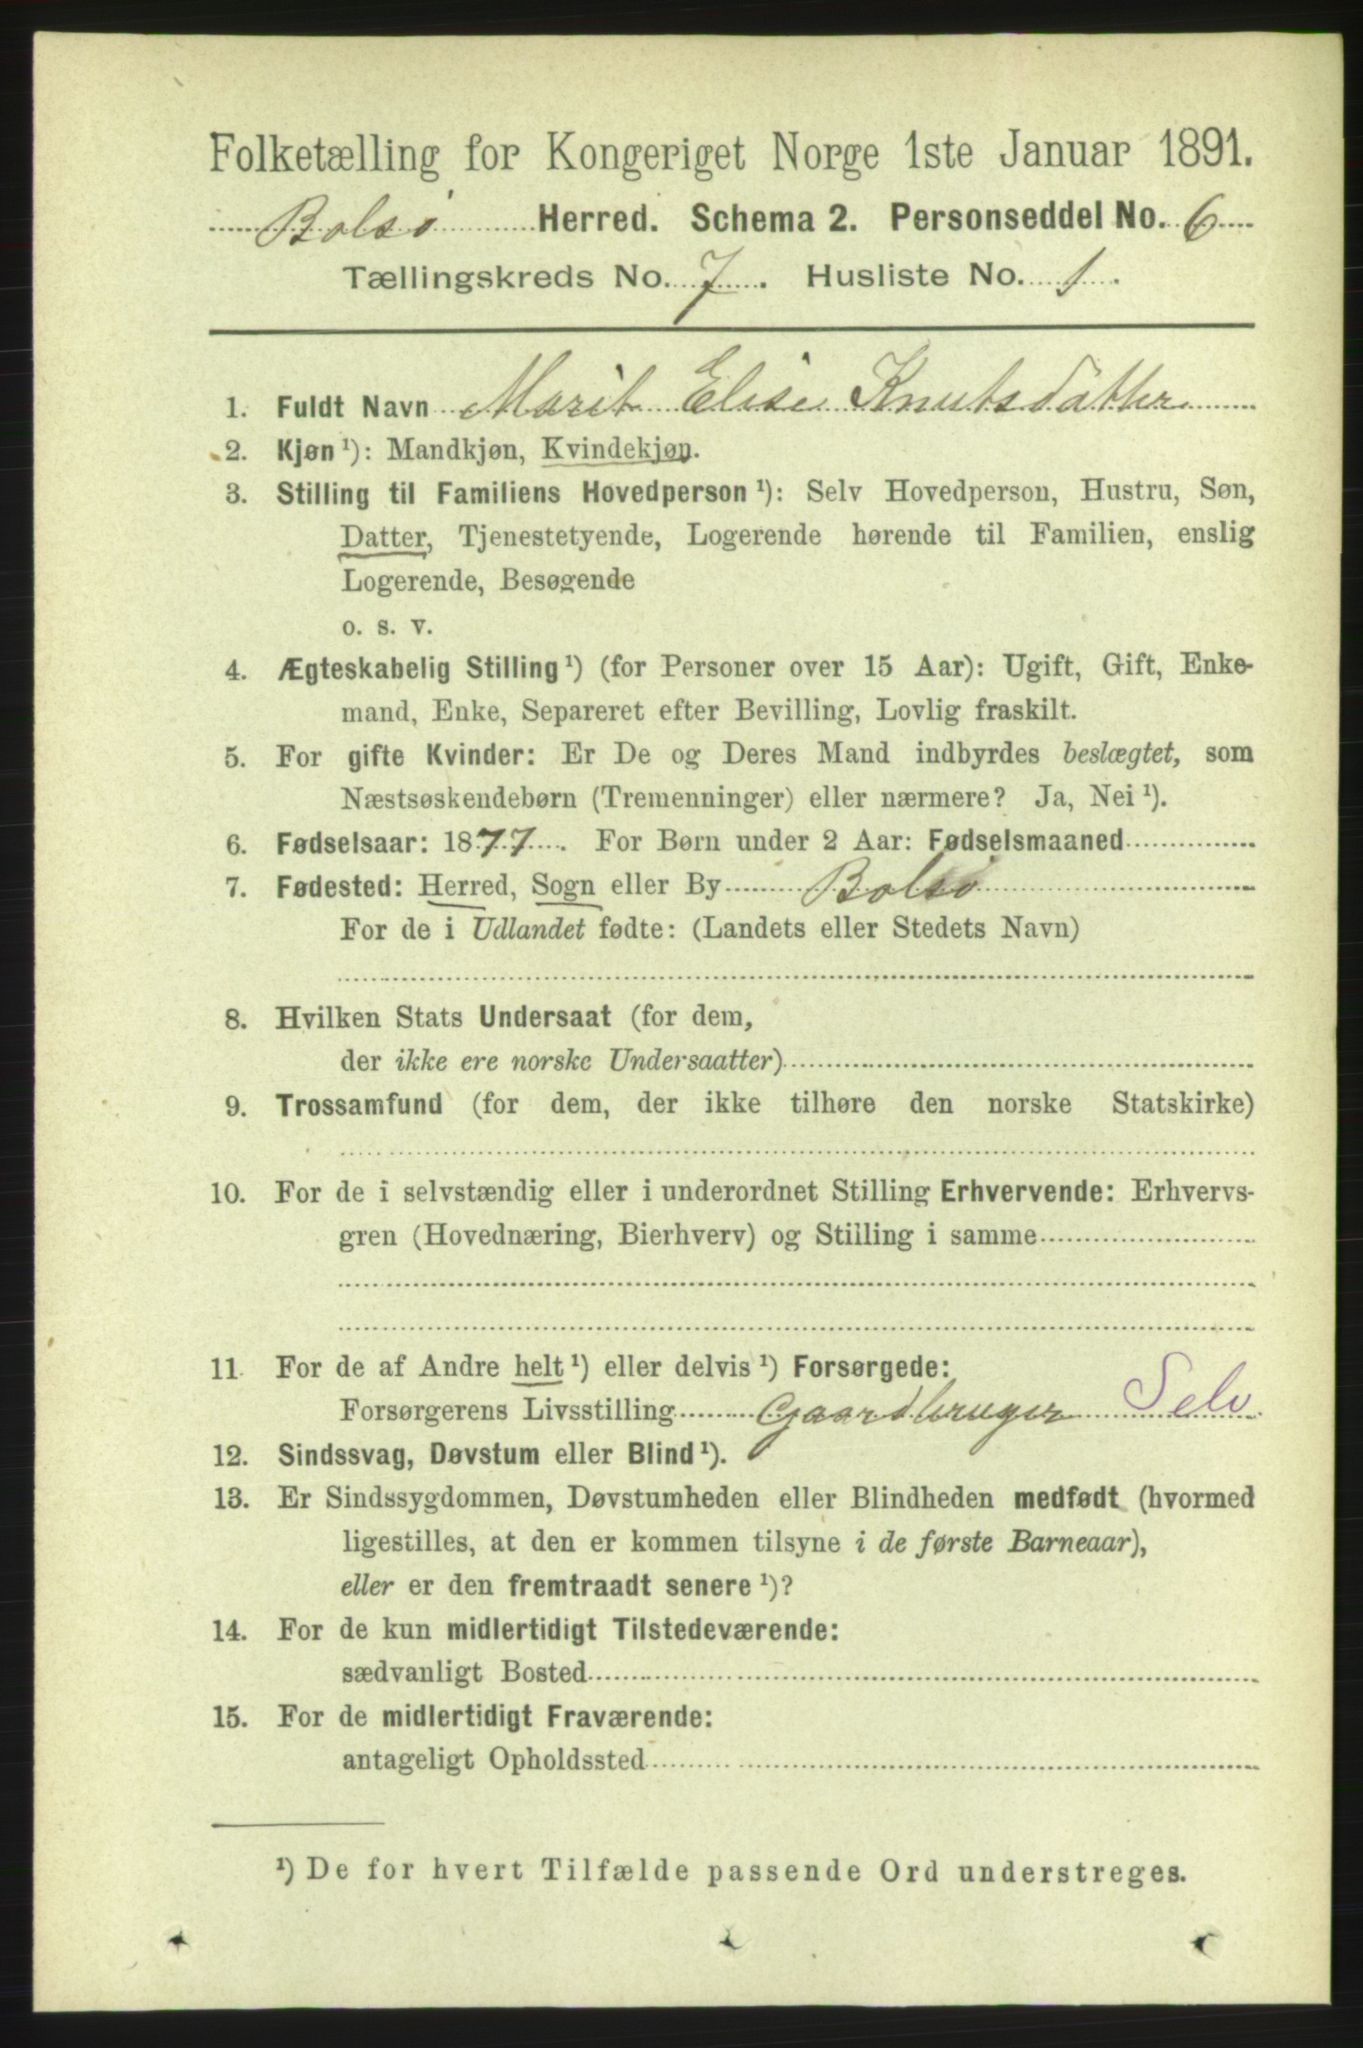 Folketælling for Kongeriget Norge 1ste Januar 1891.
Bolsø Herred. Schema 2. Personseddel No. 6
Tællingskreds No. 7. Husliste No. 1.
1. Fuldt Navn Marit Elise Knutsdatter
2. Kjøn ¹): Mandkjøn, Kvindekjøn.
3. Stilling til Familiens Hovedperson ¹): Selv Hovedperson, Hustru, Søn,
Datter, Tjenestetyende, Logerende hørende til Familien, enslig
Logerende, Besøgende
o. s. v.
4. Ægteskabelig Stilling ¹) (for Personer over 15 Aar): Ugift, Gift, Enke-
mand, Enke, Separeret efter Bevilling, Lovlig fraskilt.
5. For gifte Kvinder: Er De og Deres Mand indbyrdes beslægtet, som
Næstsøskendebørn (Tremenninger) eller nærmere? Ja, Nei ¹).
6. Fødselsaar: 1877. For Børn under 2 Aar: Fødselsmaaned
7. Fødested: Herred, Sogn eller By Bolsø
For de i Udlandet fødte: (Landets eller Stedets Navn)
8. Hvilken Stats Undersaat (for dem,
der ikke ere norske Undersaatter)
9. Trossamfund (for dem, der ikke tilhøre den norske Statskirke)
10. For de i selvstændig eller i underordnet Stilling Erhvervende: Erhvervs-
gren (Hovednæring, Bierhverv) og Stilling i samme
11. For de af Andre helt ¹) eller delvis ¹) Forsørgede:
Forsørgerens Livsstilling Gaardbruger Selv.
12. Sindssvag, Døvstum eller Blind ¹).
13. Er Sindssygdommen, Døvstumheden eller Blindheden medfødt (hvormed
ligestilles, at den er kommen tilsyne i de første Barneaar),
eller er den fremtraadt senere ¹)?
14. For de kun midlertidigt Tilstedeværende:
sædvanligt Bosted
15. For de midlertidigt Fraværende:
antageligt Opholdssted
¹) De for hvert Tilfælde passende Ord understreges.